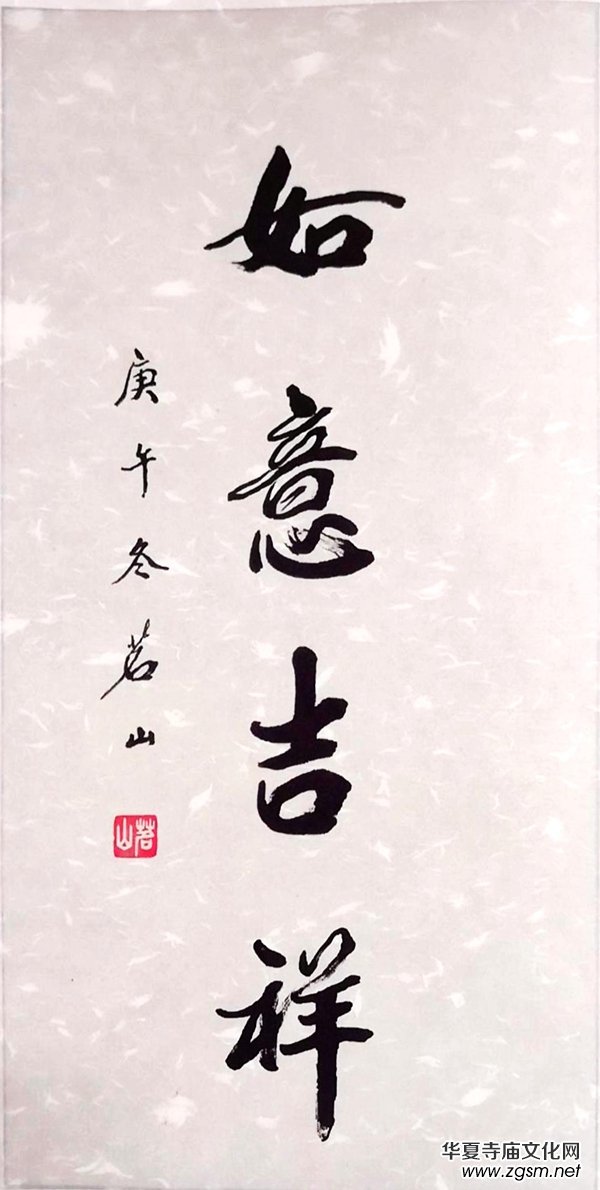 如意吉祥
庚午冬茗山
茗山
华夏寺庙文化网
www.zgsm.net